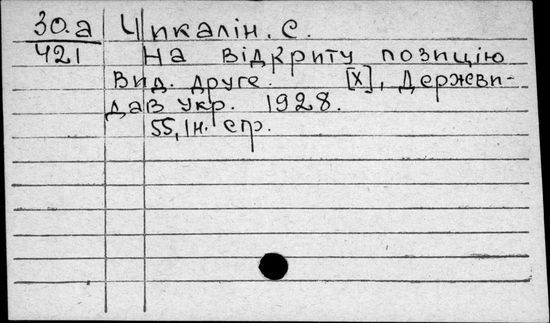 30.а Чикалін. С.
421 На відкриту позицію
Вид. друге. [х], Держви-
дав Укр. 1928.
55, 1н. стр.